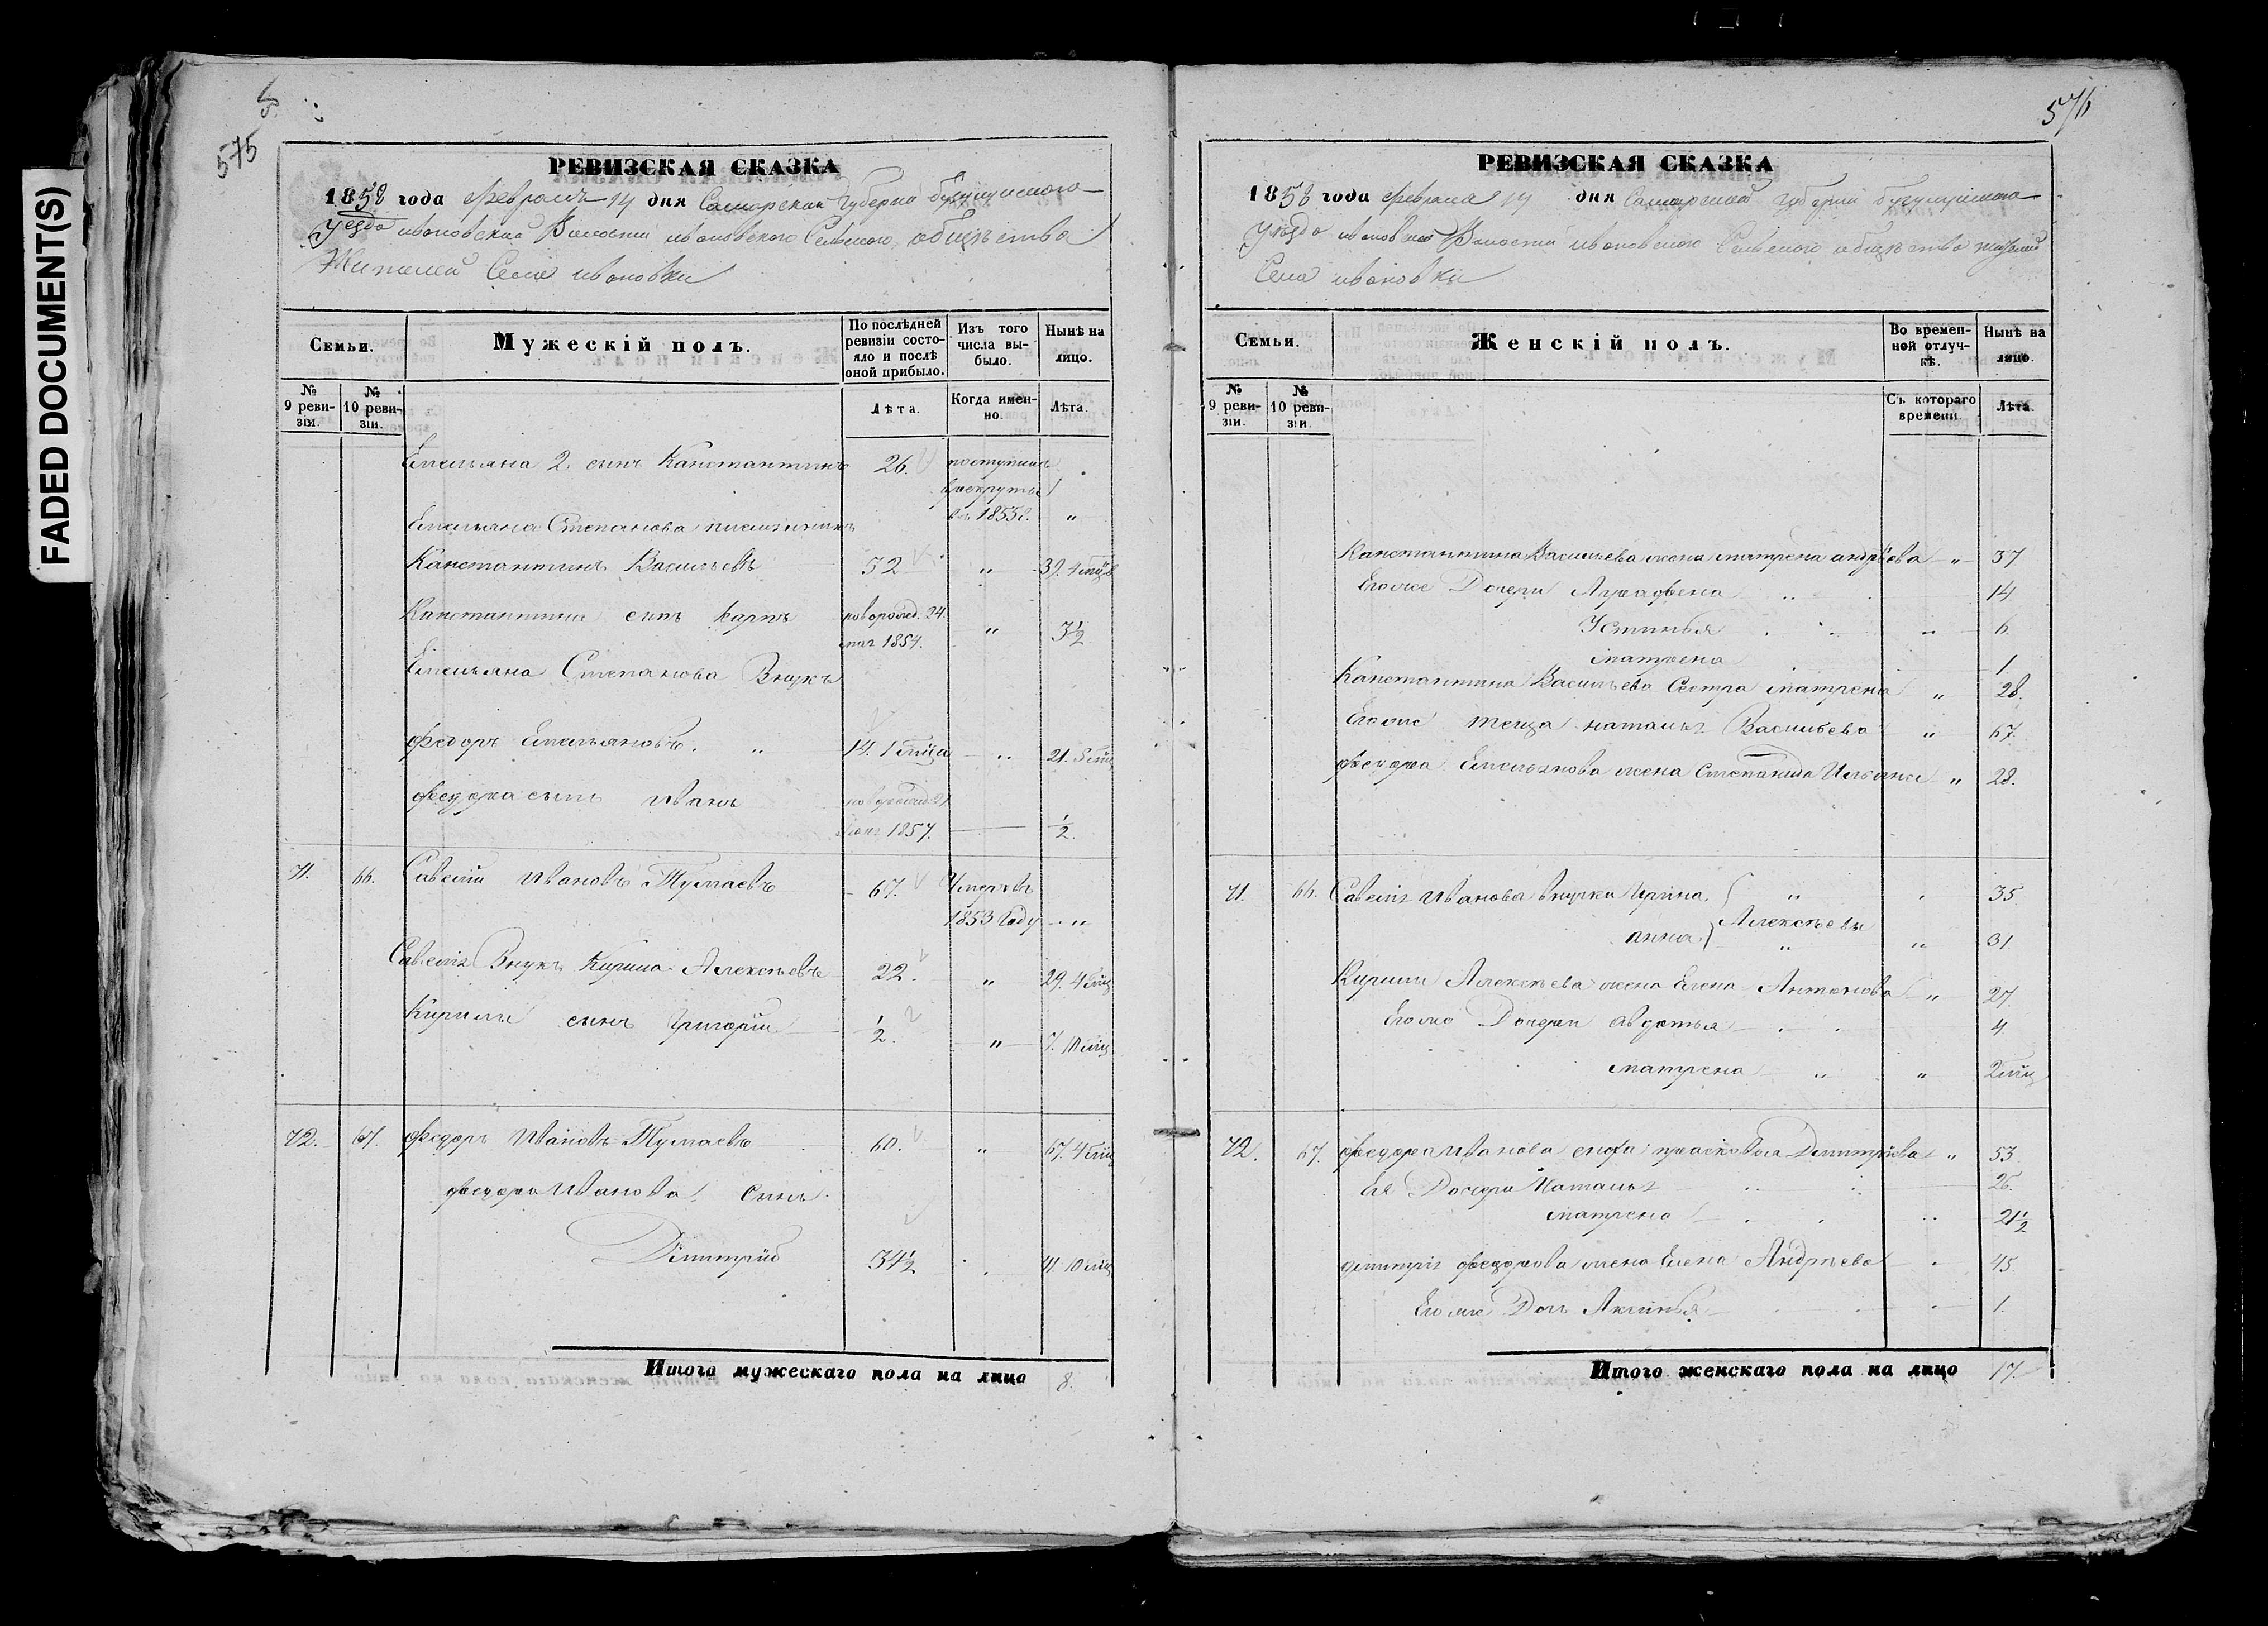 FADED DOCUMENT(S)
575
РЕВИЗСКАЯ СКАЗКА
1858 года февраля 14 дня Самарской губернии бугульминского
Уезда ивановской Волости ивановского Сельского общѣства
Жителей Села ивановки
Семьи.
Мужескій полъ.
По послѣдней ревизіи состояло и послѣ оной прибыло.
Изъ того числа выбыло.
Нынѣ на лицо.
№ 9 ревизіи.
№ 10 ревизіи.
Лѣта.
Когда именно.
Лѣта.
Емельяна 2. сынъ Канстантинъ 26. поступилъ
в рекруты
въ 1855г. "
Емельяна Степанова племянникъ
Канстантинъ Васильевъ 32 " 39. 4 мца
Канстантина сынъ Карпъ новорожд. 24.
1854. " 3½
Емельяна Степанова Внукъ
федоръ Емельяновъ. " 14. 1 мца " 21. 5 мц
федора сынъ Иванъ новорожд. 21
1857. ½.
71. 66. Савелий Ивановъ Тумаевъ 67. Умеръ въ
1853 году "
Савелия Внукъ Кирила Алексѣевъ 22. " 29. 4 мц
Кирилы сынъ Григорий ½. " 7. 10 мц
72. 67. федоръ Ивановъ Тумаевъ 60. " 67. 4 мц
федора Иванова Сынъ
Дмитрий 34½ 41. 10 мц
Итого мужескаго пола на лицо 8.
576
РЕВИЗСКАЯ СКАЗКА
1858 года февраля 14 дня Самарской губернии бугульминского
Уезда ивановской Волости ивановского Сельского общѣства жителей
Села ивановки
Семьи.
Женскій полъ.
Во временной отлучкѣ.
Нынѣ на лицо.
№ 9 ревизіи.
№ 10 ревизіи.
Съ котораго времени.
Лѣта.
Канстантина Васильева жена матрена андрѣева " 37
Его же Дочери 14
Устинья " 6.
матрена 1
Канстантина Васильева Сестра матрена " 28.
Его же теща наталья Васильева " 67.
федора Емельянова жена Степанида Ильина " 28.
71. 66. Савелия Иванова внучки Ирина " 35
Алексѣевы
анна " " 31
Кирилы Алексѣева жена Елена Антонова " 27.
Его же Дочери Авдотья 4
матрена " " 2 мц
72. 67. федора Иванова сноха прасковья Дмитриева " 53
Ея Дочери Наталья 26.
матрена " 21½
дмитрия федорова жена Елена Андрѣева 45
Его же Дочь Аксинья 1.
Итого женскаго пола на лицо 17.